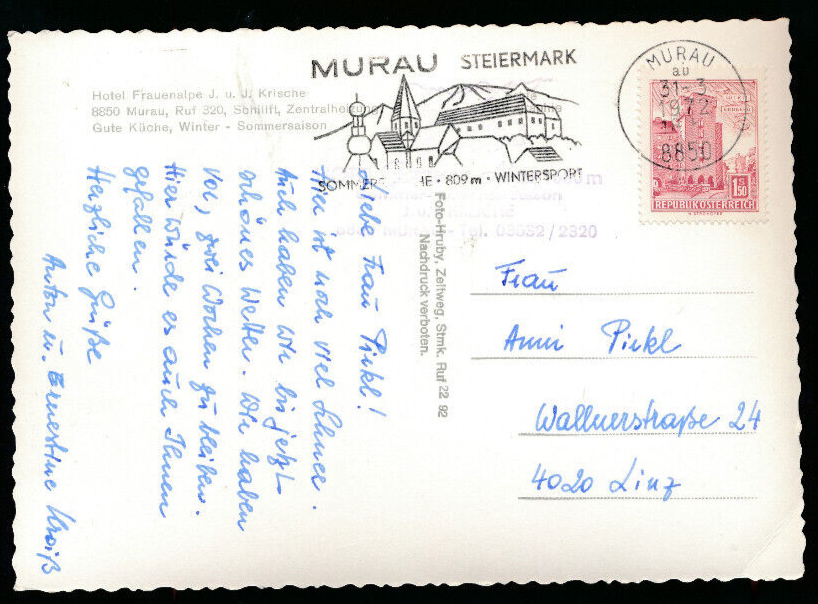 Hotel Frauenalpe J. u. J. Krische
8850 Murau, Ruf 320, Schilift, Zentralheizung
Gute Küche, Winter - Sommersaison
MURAU STEIERMARK
SOMMERF HE • 809 m • WINTERSPORT
MURAU
ab
31-3
1972
8850
1.50
REPUBLIK ÖSTERREICH
Tel. 03532/2320
Foto-Hruby, Zeltweg, Stmk. Ruf 22 92
Nachdruck verboten.
Liebe Frau Pirkl!
Hier ist noch viel Schnee.
Auch haben wir bis jetzt
schönes Wetter. Wir haben
vor, zwei Wochen zu bleiben.
Hier würde es auch Ihnen
gefallen.
Herzliche Grüße
Anton u. Ernestine Kroiß
Frau
Anni Pirkl
Wallnerstraße 24
4020 Linz